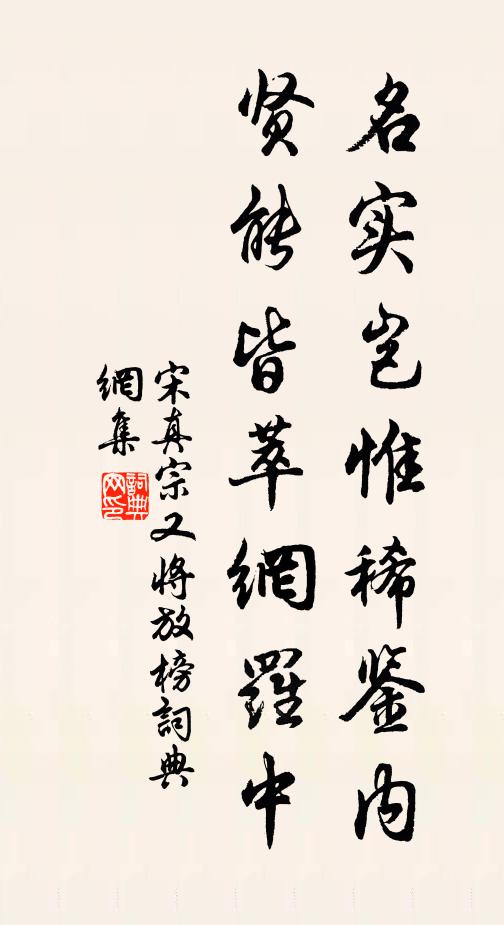 名实岂惟稀鉴内
贤能皆萃網羅中
宋真宗又将放榜詞典
網集
詞典
网印